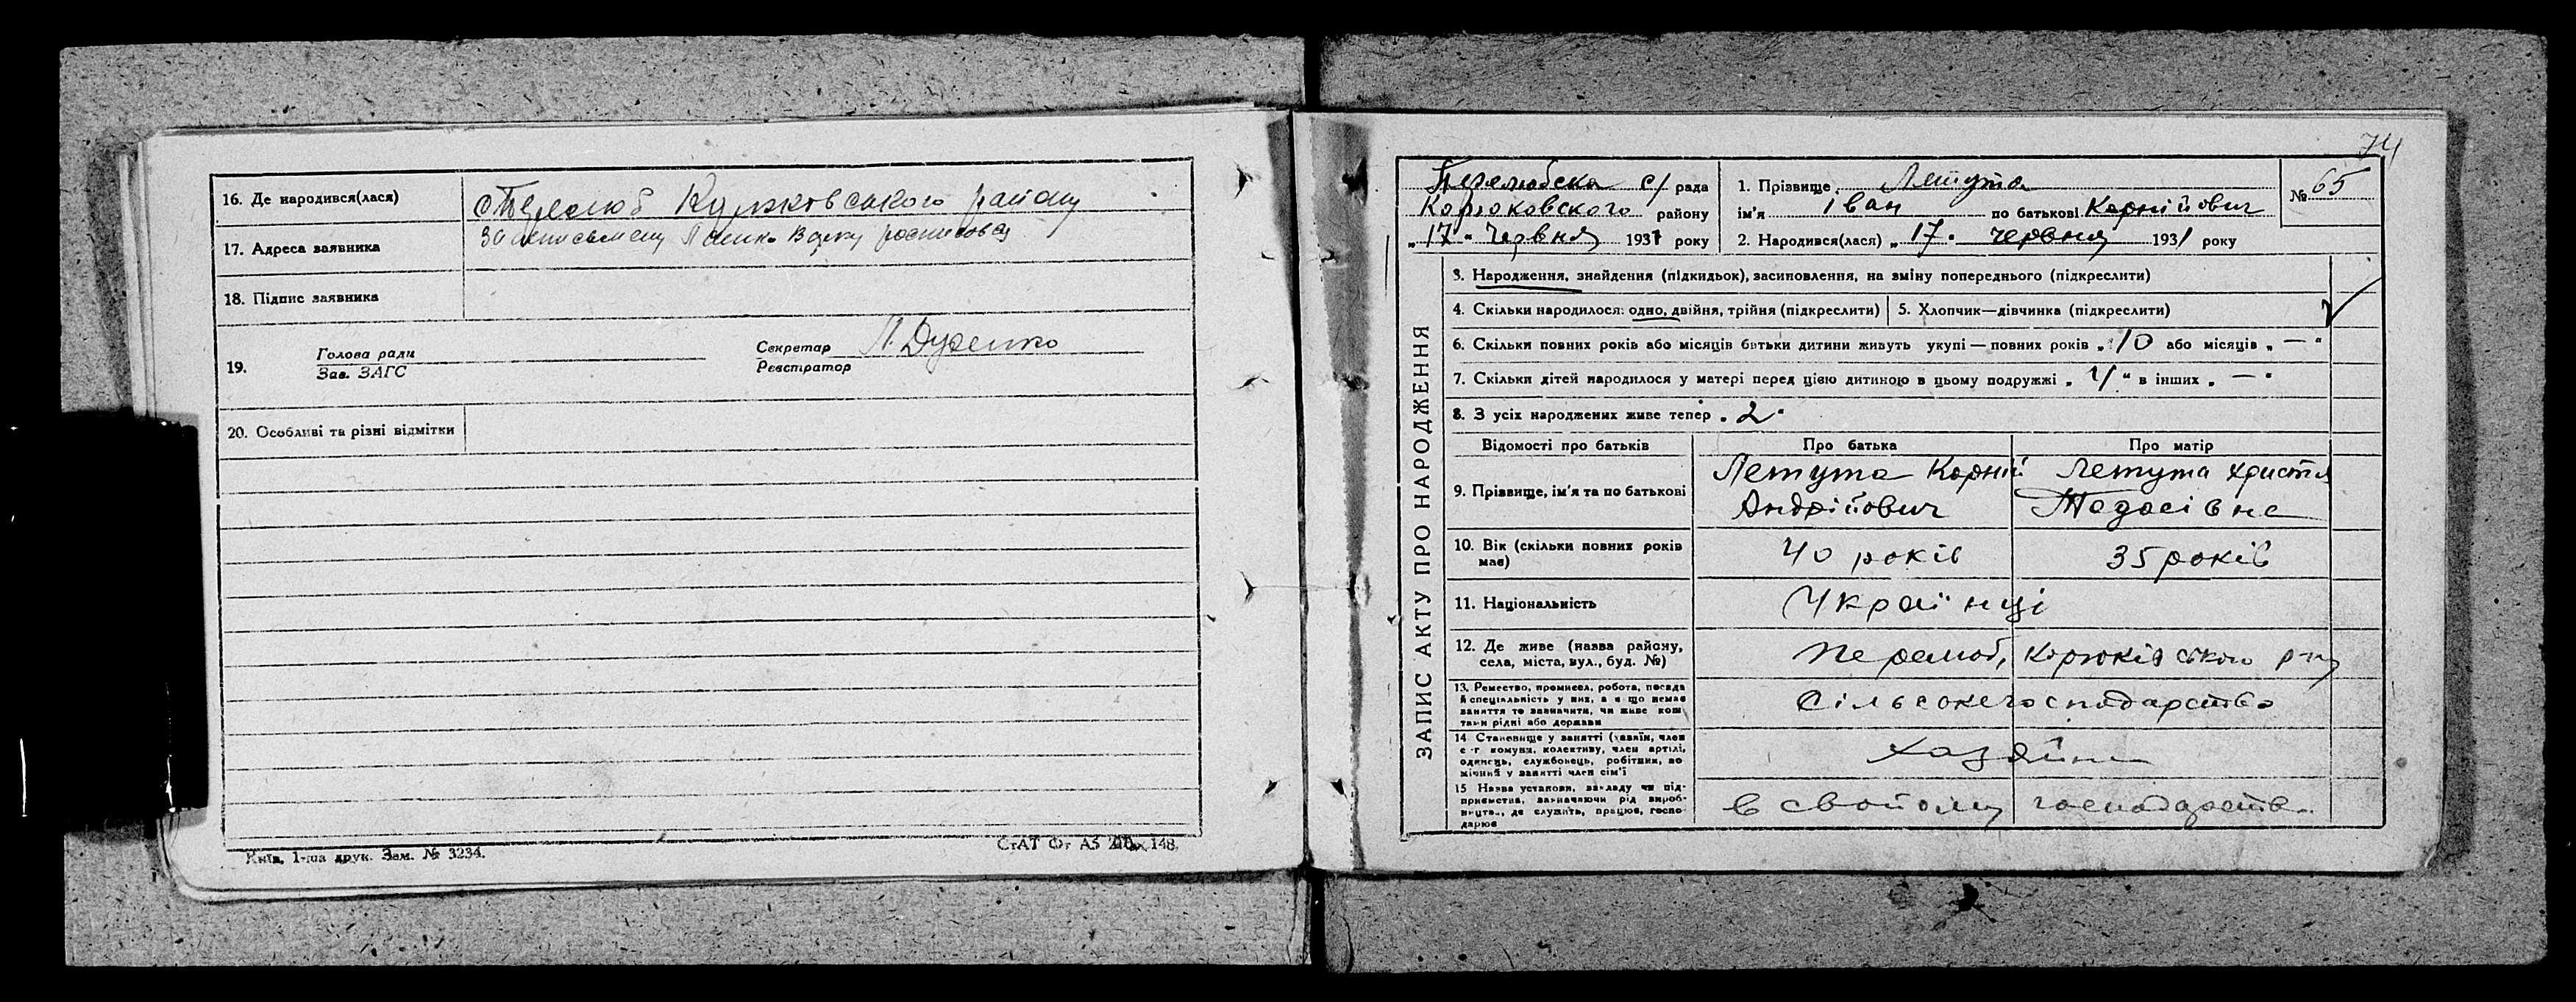 16. Де народився(лася)
с Перелюб Корюковського району
17. Адреса заявника
За неписьмену
18. Підпис заявника
19.
Голова ради
Зав. ЗАГС
Секретар
Реєстратор
Л. Дуденко
20. Особливі та різні відмітки
Київ, 1-ша друк. Зам. № 3234.
СтАТ Фт А5 148.
74
Перелюбска с/ рада
Корюковского району
„17" Червня 1931 року
1. Прізвище Летута
ім'я Іван по батькові Корнійович
2. Народився(лася) „17" червня 1931 року
№ 65
ЗАПИС АКТУ ПРО НАРОДЖЕННЯ
3. Народження, знайдення (підкидьок), засиновлення, на зміну попереднього (підкреслити)
4. Скільки народилося: одно, двійня, трійня (підкреслити)
5. Хлопчик—дівчинка (підкреслити)
6. Скільки повних років або місяців батьки дитини живуть укупі — повних років „10 або місяців „—"
7. Скільки дітей народилося у матері перед цією дитиною в цьому подружжі „4" в інших „—"
8. З усіх народжених живе тепер „2"
Відомості про батьків
Про батька
Про матір
9. Прізвище, ім'я та по батькові
Летута Корній
Андрійович
Летута Христя
Тодосівна
10. Вік (скільки повних років
має)
40 років
35 років
11. Національність
Українці
12. Де живе (назва району,
села, міста, вул., буд. №)
Перелюб, Корюківського р-ну
13. Ремество, промисел, робота, посада
й спеціяльність у них, а якщо немає
заняття то зазначити, чи живе кош
тами рідні або держави
Сільськегосподарство
14 Становище у занятті (хазяїн, член
с-г комуни, колективу, член артілі,
одинець, службовець, робітник, по
мічний у занятті член сім'ї
хазяїни
15 Назва установи, закладу чи під-
приємства, зазначаючи рід вироб-
ництва, де служить, працює, госпо-
дарює
в свойому господарстві